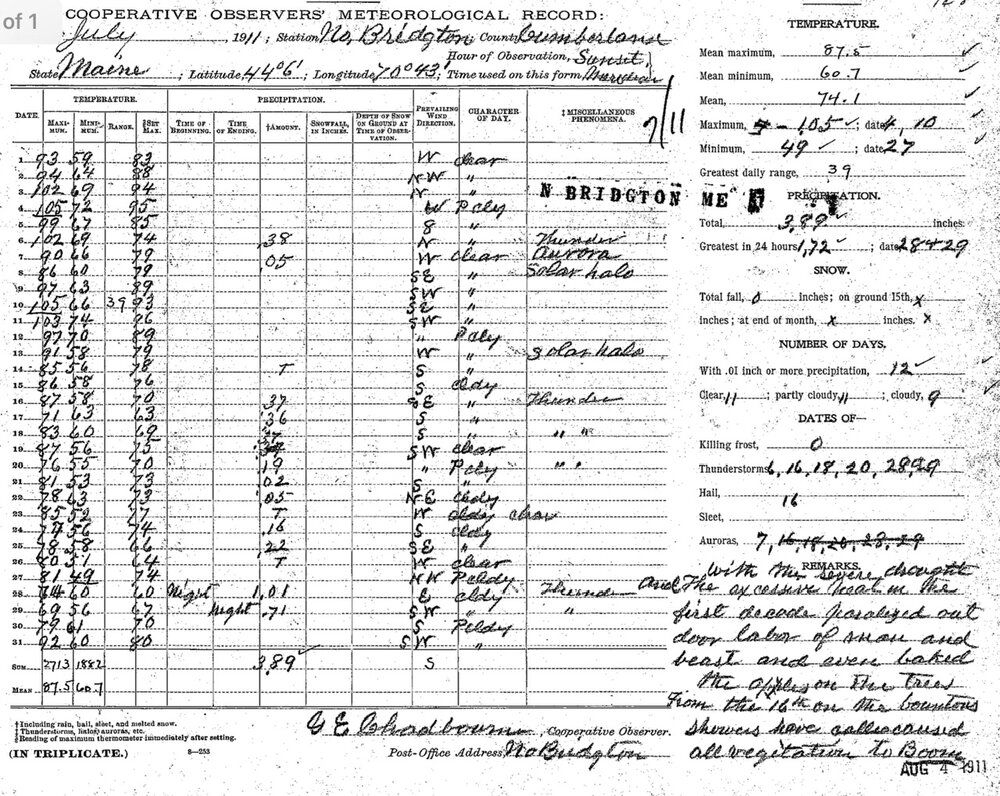 of 1
COOPERATIVE OBSERVERS' METEOROLOGICAL RECORD:
July, 1911; Station No. Bridgton; County Cumberland
State Maine; Latitude 44°6'; Longitude 70°43'; Hour of Observation, Sunset; Time used on this form
DATE. TEMPERATURE. PRECIPITATION. PREVAILING WIND DIRECTION. CHARACTER OF DAY. ‡MISCELLANEOUS PHENOMENA.
MAXIMUM. MINIMUM. RANGE. §SET MAX. TIME OF BEGINNING. TIME OF ENDING. †AMOUNT. SNOWFALL, IN INCHES. DEPTH OF SNOW ON GROUND AT TIME OF OBSERVATION.
7/11
1 93 59 83 W clear
2 94 64 88 NW "
3 102 69 94 N "
N BRIDGTON ME
4 105 72 95 W P cldy
5 99 67 85 S "
6 102 69 74 .38 N " Thunder
7 90 66 79 .05 W clear Aurora
8 86 60 79 SE " Solar halo
9 97 63 89 SW "
10 105 66 39 93 SE "
11 103 74 96 SW "
12 97 70 89 " P cldy
13 91 58 79 W " Solar halo
14 85 56 78 T S "
15 86 58 76 S cldy
16 87 58 70 .37 SE " Thunder
17 71 63 63 .36 S "
18 83 60 69 .37 S " " "
19 87 56 75 SW clear
20 76 55 70 .19 " P cldy " "
21 81 53 73 .02 S "
22 78 63 73 .05 NE cldy
23 85 52 77 T W cldy clear
24 74 56 74 .16 S cldy
25 78 58 66 .22 SE "
26 80 51 64 T W clear
27 81 49 74 NW P cldy
28 74 60 60 Night 1.01 E cldy Thunder
29 69 56 67 Night .71 SW " "
30 79 61 70 S P cldy
31 92 60 80 SW "
SUM 2713 1882 3.89 S
MEAN 87.5 60.7
†Including rain, hail, sleet, and melted snow.
‡Thunderstorms, halos, auroras, etc.
§Reading of maximum thermometer immediately after setting.
(IN TRIPLICATE.) 8—253
G E Chadbourn, Cooperative Observer.
Post-Office Address, No Bridgton
TEMPERATURE.
Mean maximum, 87.5
Mean minimum, 60.7
Mean, 74.1
Maximum, 105; date 4, 10
Minimum, 49; date 27
Greatest daily range, 39
PRECIPITATION.
Total, 3.89 inches.
Greatest in 24 hours 1.72; date 28+29
SNOW.
Total fall, 0 inches; on ground 15th, x
inches; at end of month, x inches. x
NUMBER OF DAYS.
With .01 inch or more precipitation, 12
Clear, 11; partly cloudy, 11; cloudy, 9
DATES OF—
Killing frost, 0
Thunderstorms 6, 16, 18, 20, 28, 29
Hail, 16
Sleet,
Auroras, 7, 16, 18, 20, 28, 29
REMARKS.
With the severe drought
and The excessive heat in the
first decade paralized out
door labor of man and
beast and even baked
the apples on the trees
From the 16th on the bountous
showers have caused
all vegitation to Boom
AUG 4 1911